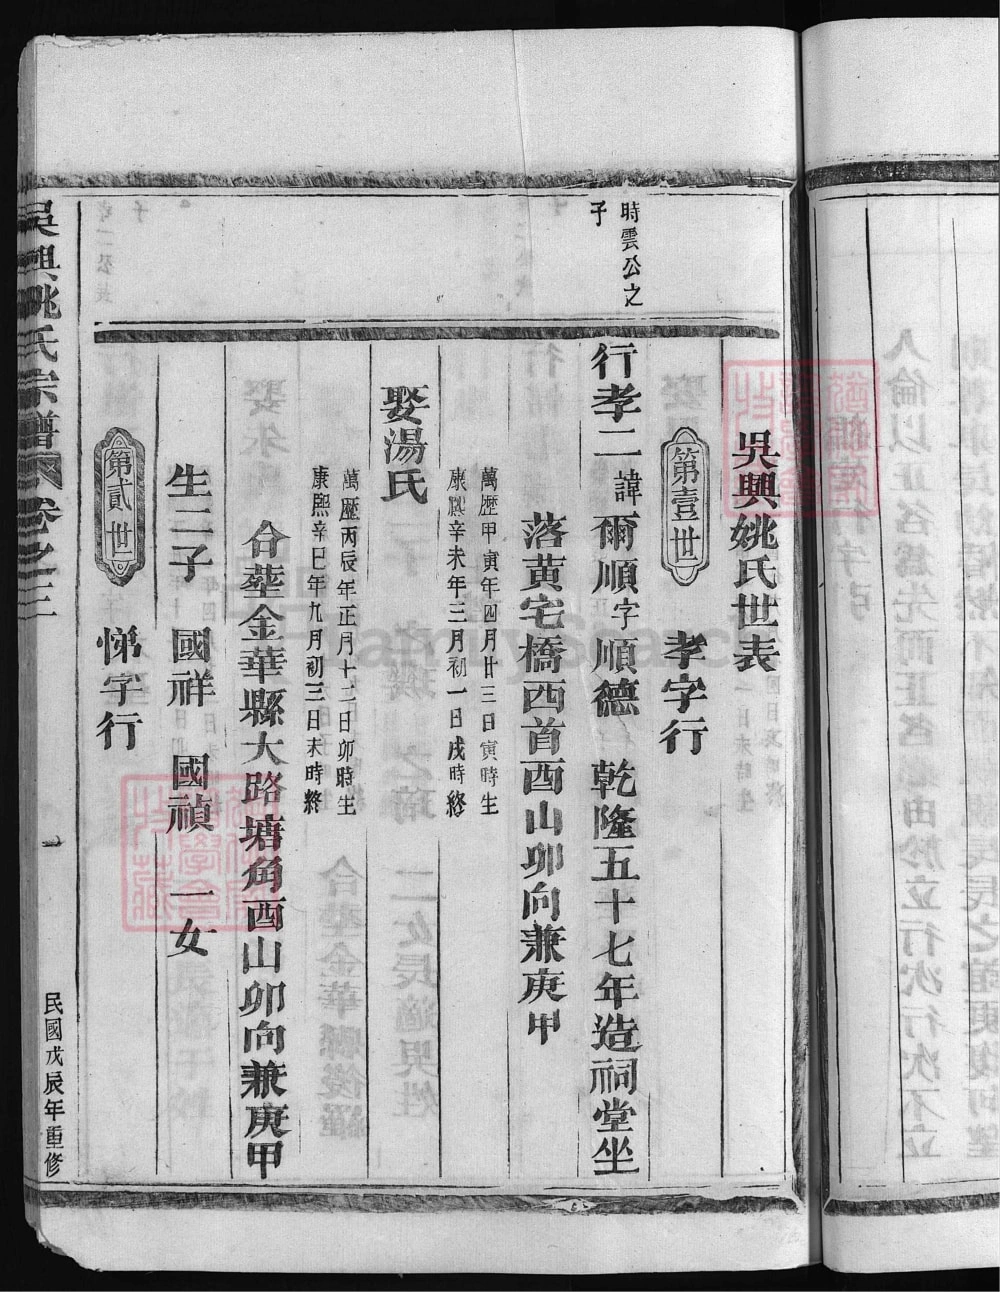 吳興姚氏世表
第壹世
孝字行
時雲公之
子
行孝二諱爾順字順德 乾隆五十七年造祠堂坐
落黄宅橋西首酉山卯向兼庚甲
萬歷甲寅年四月廿三日寅時生
康熙辛未年三月初一日戌時終
娶湯氏
萬歷丙辰年正月十二日卯時生
康熙辛巳年九月初三日未時終
合塟金華縣大路塘角酉山卯向兼庚甲
生二子 國祥 國禎 一女
第貳世
悌字行
吳興姚氏宗譜 卷之三
一
民國戊辰年重修